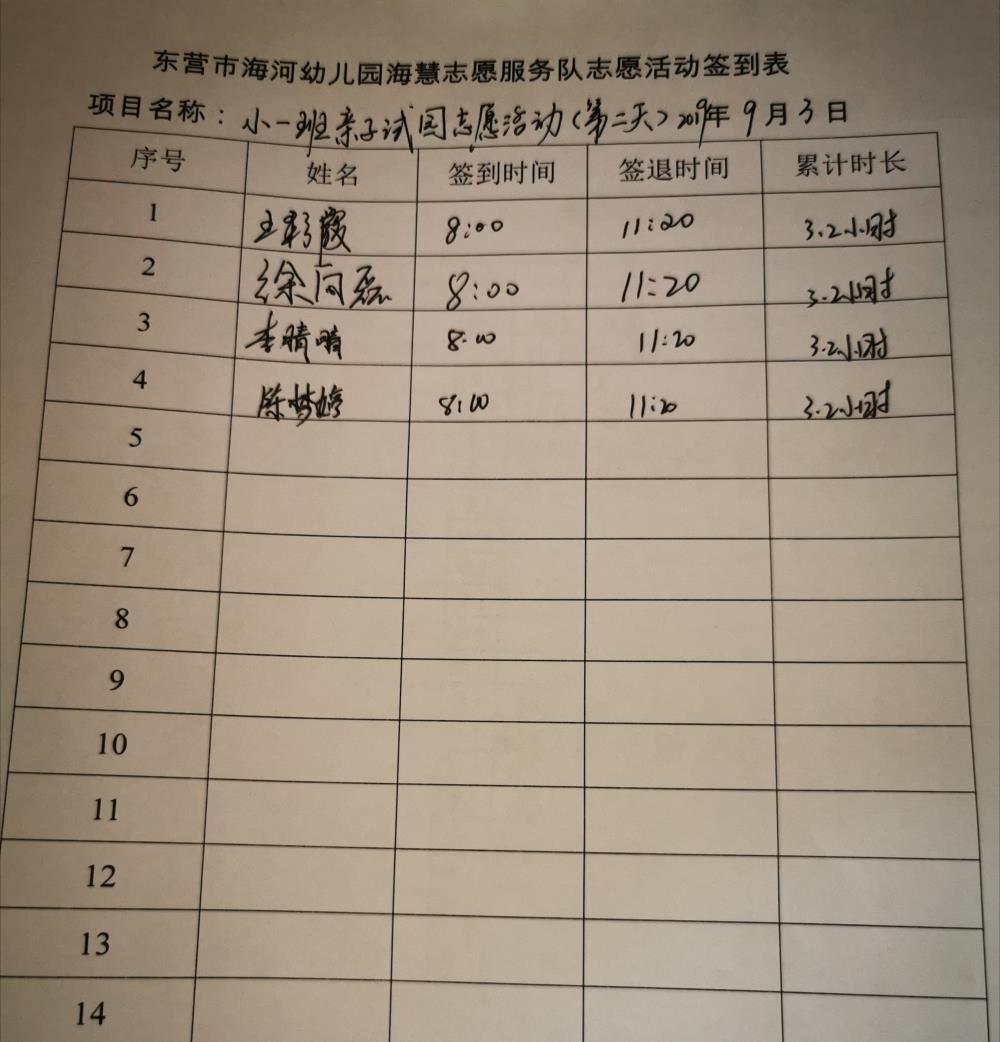 东营市海河幼儿园海慧志愿服务队志愿活动签到表
项目名称：小一班亲子试园志愿活动（第二天）2019年9月3日
序号 姓名 签到时间 签退时间 累计时长
1 王彩霞 8:00 11:20 3.2小时
2 徐向磊 8:00 11:20 3.2小时
3 李晴晴 8:00 11:20 3.2小时
4 陈梦婷 8:00 11:20 3.2小时
5
6
7
8
9
10
11
12
13
14